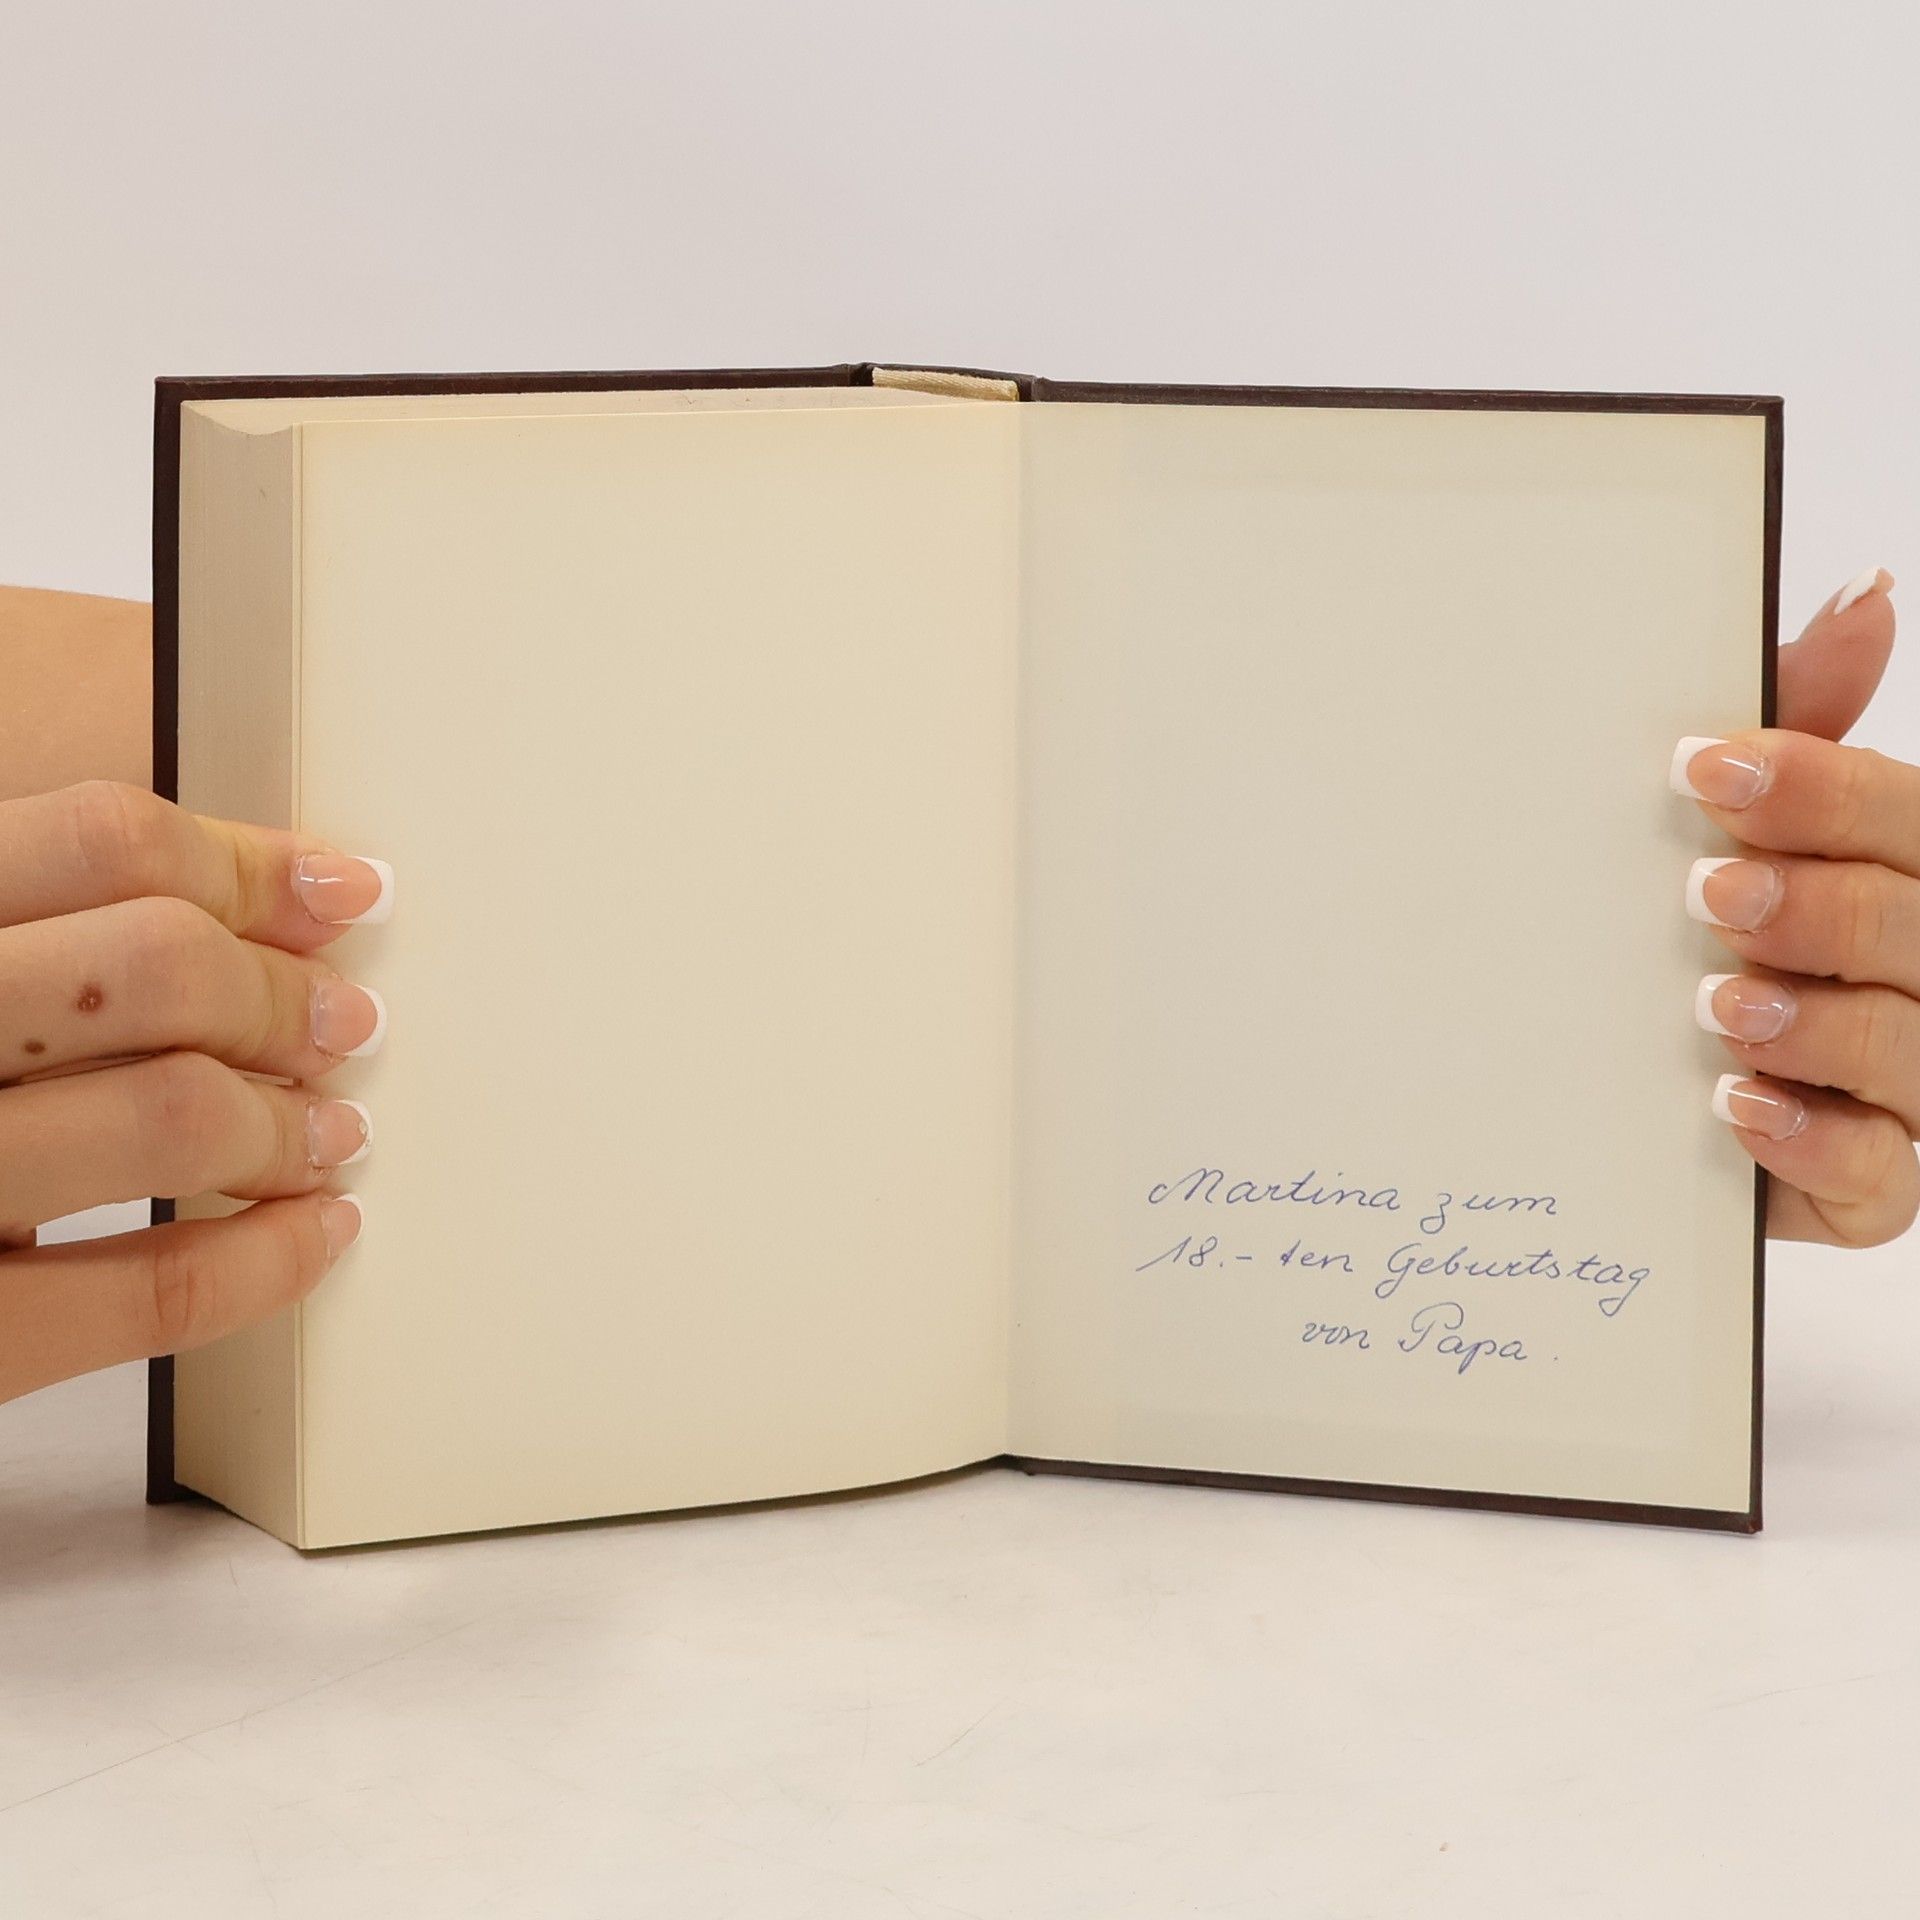 Martina zum
18.- ten Geburtstag
von Papa .